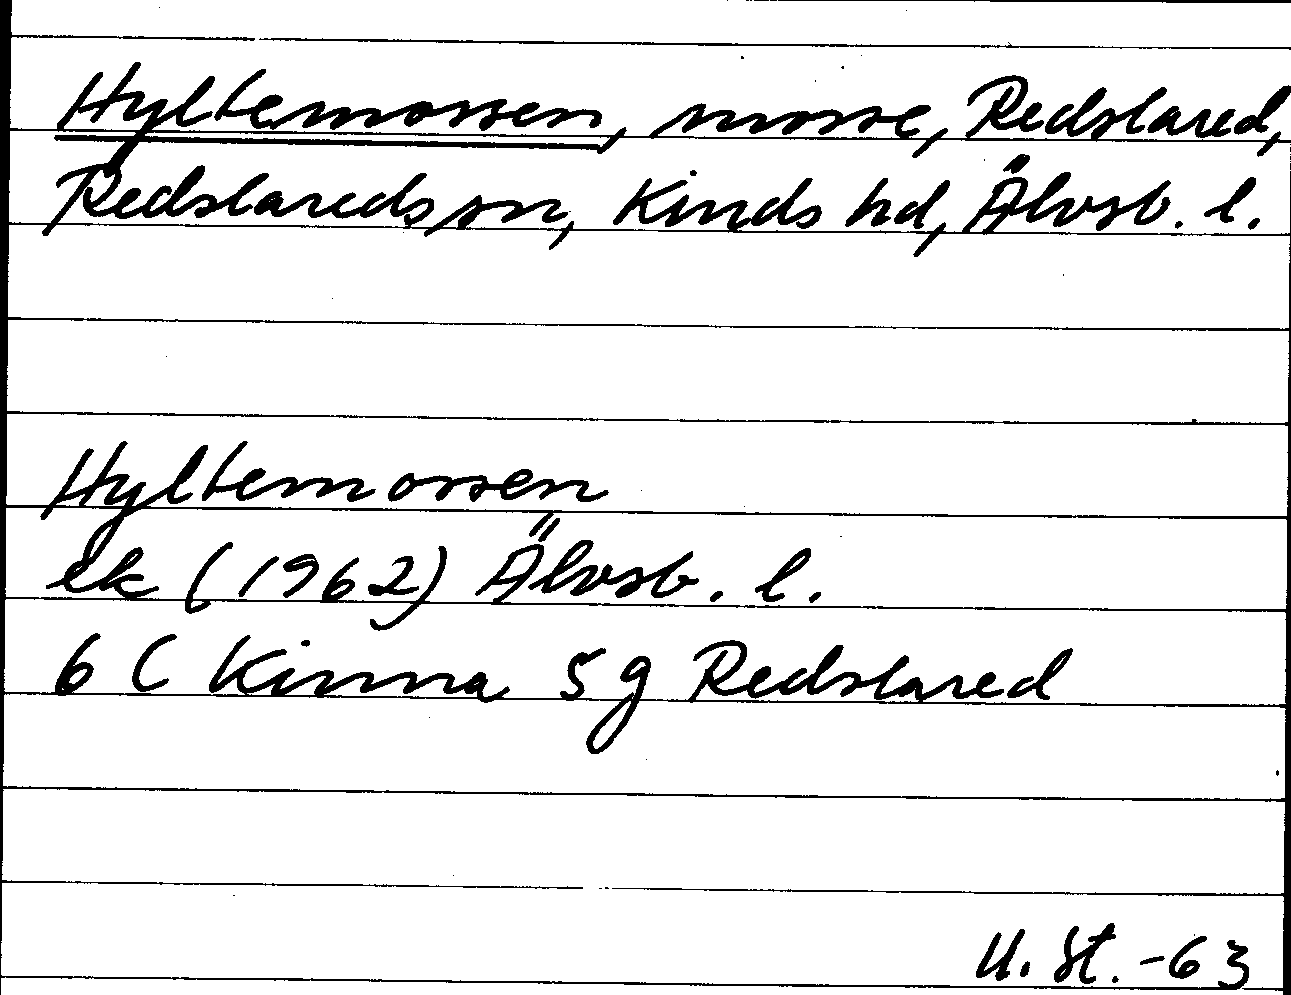 Hyltemossen, mosse, Redslared,
Redslareds sn, Kinds hd, Älvsb. l.
Hyltemossen
ek (1962) Älvsb. l.
6 C Kinna 5 g Redslared
U. St. -63